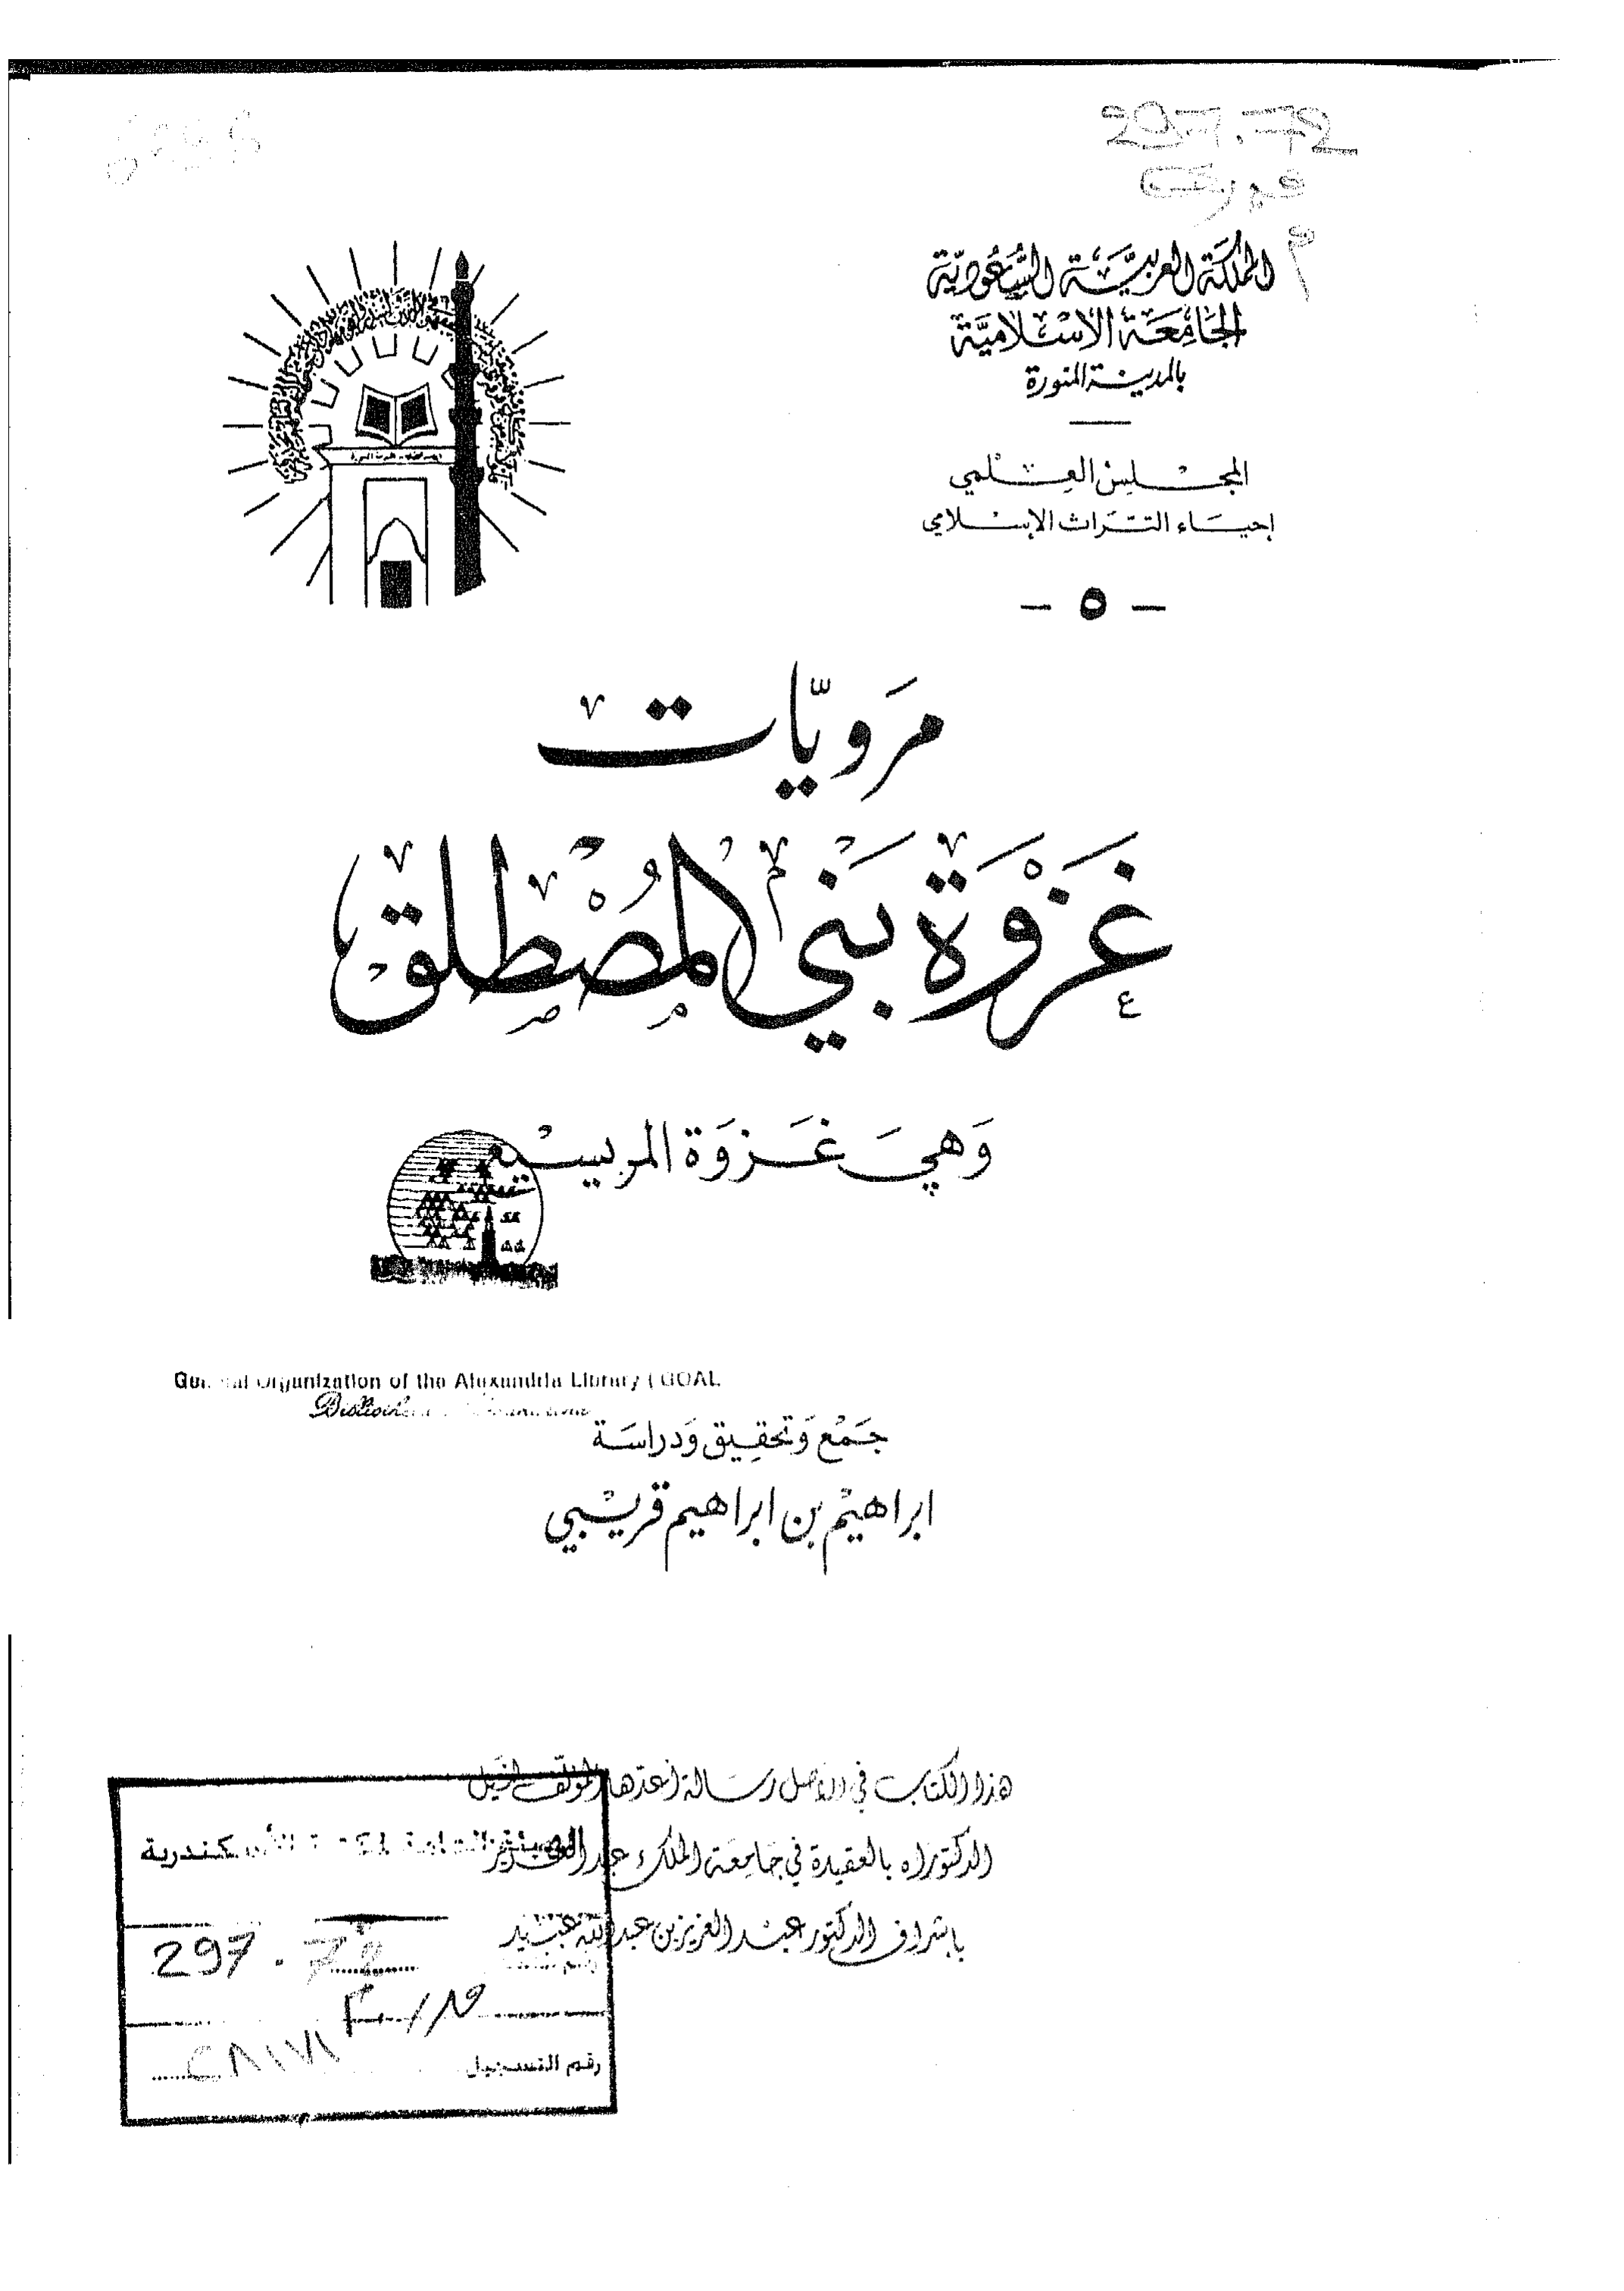 297.72
المملكة العربيَّة السَّعُوديّة
الجَامِعَة الاسْلاميَّة
بالمدينة المنورة
المجْلِس العِلْمي
إحيَاء التَراث الإسْلامي
- ٥ -
مَرويّات
غَزْوَة بَني المُصْطلق
وَهيَ غَزوَة المريسيع
General Organization of the Alexandria Library (GOAL
جَمْع وَتحقيق وَدراسَة
ابراهيْم بن ابراهيم قريْبي
هذا الكتاب في الأصل رسَالة أعدّها المؤلّف لنيَل
الدكتوراه بالعقيدة في جَامِعَة الملك عبد العزيز
باشراف الدكتور عبْد العزيز بن عبد الله عبيد
الهيئة العامة لمكتبة الأسكندرية
297.72
رقم التسجيل